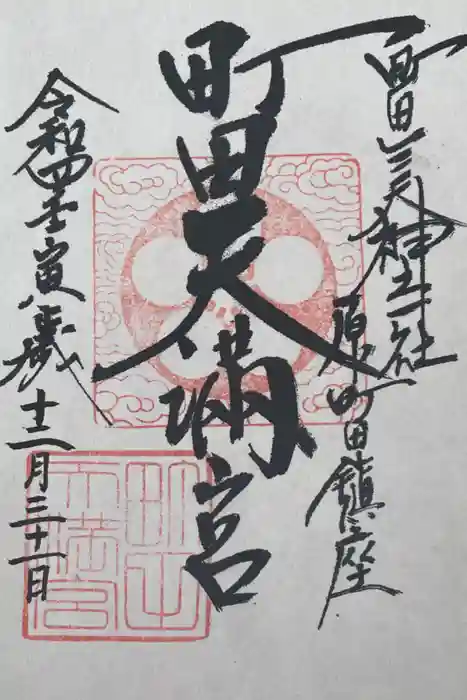 町田三天神社
原町田鎮座
町田天満宮
令和四壬寅歳
十二月三十一日
町田
天満宮